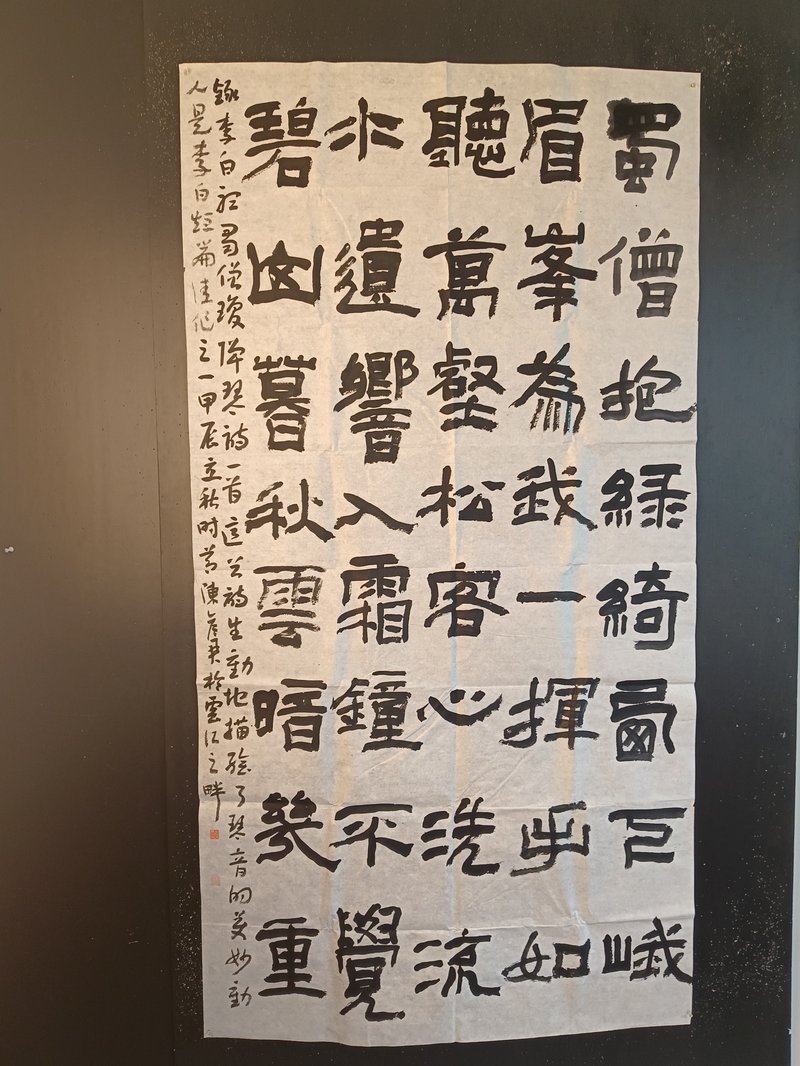 蜀僧抱綠綺西下峨
眉峯為我一揮手如
聽萬壑松客心洗流
水遺響入霜鐘不覺
碧山暮秋雲暗幾重
錄李白聽蜀僧濬彈琴詩一首這首詩生動地描繪了琴音的美妙動
人是李白短篇佳作之一甲辰立秋时节陳於雲江之畔